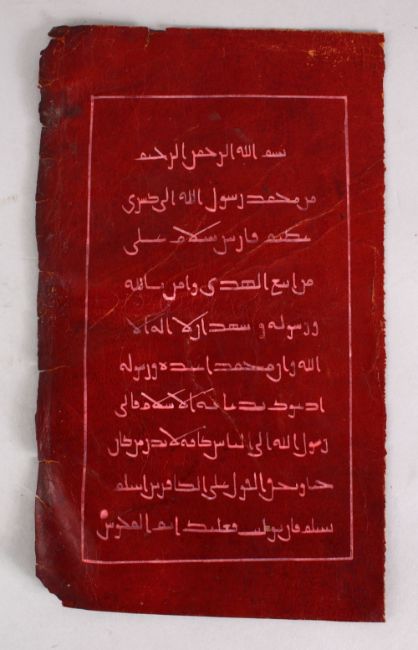 بسم الله الرحمن الرحيم
من محمد رسول الله الى كسرى
عظيم فارس سلام على
من اتبع الهدى وامن بالله
ورسوله وشهد ان لا اله الا
الله وان محمد عبده ورسوله
ادعوك بدعاية الاسلام فانى
رسول الله الى الناس كافة لانذر من كان
حيا ويحق القول على الكافرين اسلم
تسلم فان توليت فعليك اثم المجوس